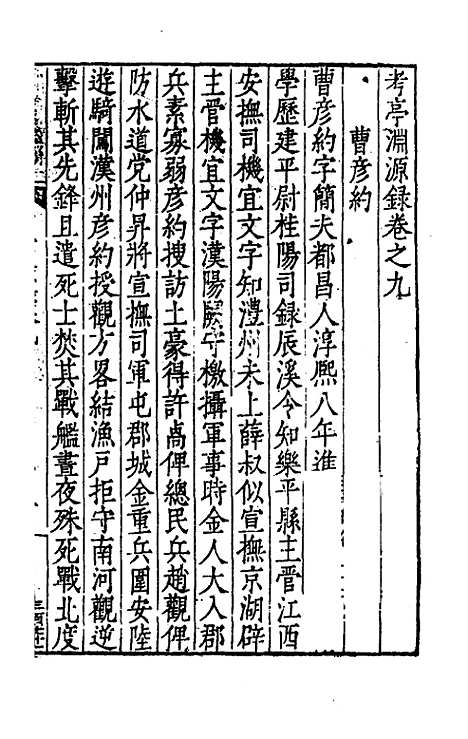 考亭淵源錄卷之九
曹彥約
曹彥約字簡夫都昌人淳熙八年進
學歷建平尉桂陽司錄辰溪令知樂平縣主管江西
安撫司機宜文字知澧州未上薛叔似宣撫京湖辟
主管機宜文字漢陽闕守檄攝軍事時金人大入郡
兵素寡弱彥約搜訪土豪得許卨俾總民兵趙觀俾
防水道党仲昇將宣撫司軍屯郡城金重兵圍安陸
遊騎闖漢州彥約授觀方畧結漁戶拒守南河觀逆
擊斬其先鋒且遣死士焚其戰艦晝夜殊死戰北度